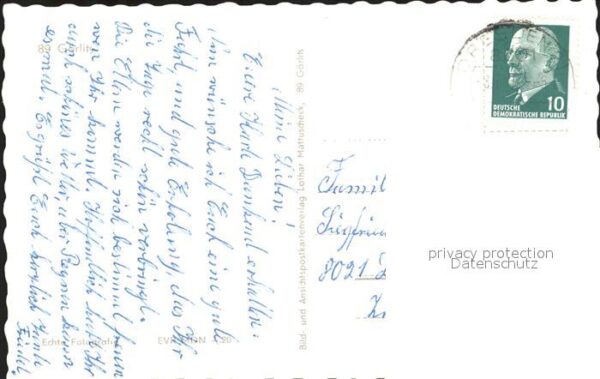 89 Görlitz
Meine Lieben!
Eure Karte Dankend erhalten.
Nun wünsche ich Euch ein gute
Fahrt, und gute Erholung das Ihr
die Tage recht schön verbringt.
Die Eltern werden sich bestimmt freuen
wenn Ihr kommt. Hoffentlich habt Ihr
auch schönes Wetter
Es grüßt Euch herzlich
Echte Fotografie
EV
Bild- und Ansichtspostkartenverlag Lothar Mattuscheck, 89 Görlitz
DEUTSCHE
DEMOKRATISCHE REPUBLIK
10
Famil
8021
privacy protection
Datenschutz